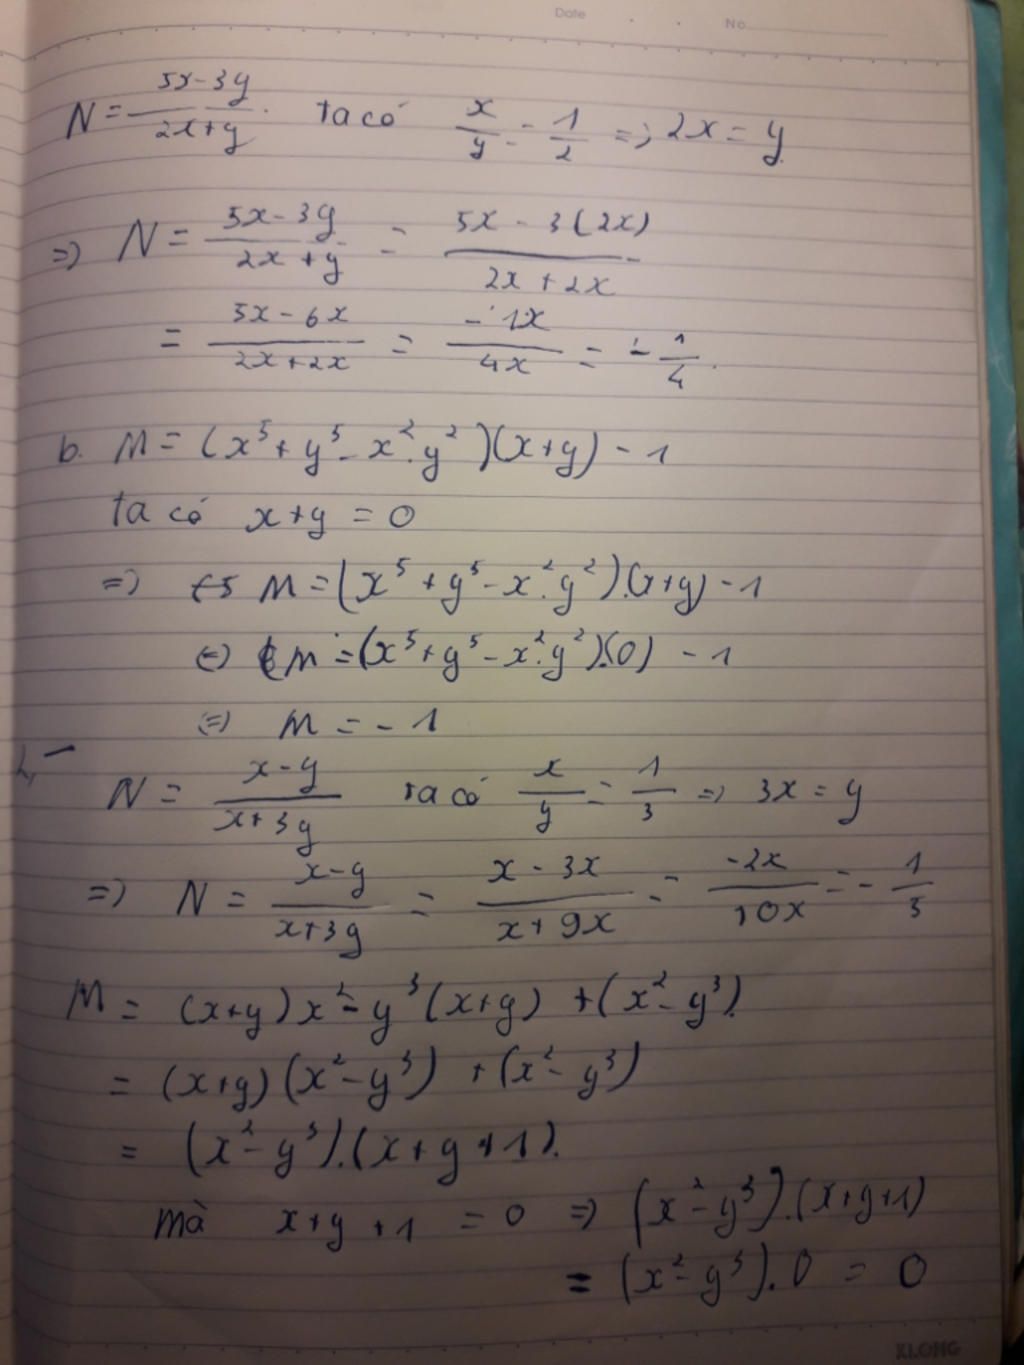 Date No
N = 5x-3y / 2x+y . ta có x/y = 1/2 => 2x = y
=> N = 5x-3y / 2x+y = 5x - 3(2x) / 2x + 2x
= 5x - 6x / 2x+2x = -1x / 4x = - 1/4 .
b. M = (x⁵ + y⁵ - x².y²)(x+y) - 1
ta có x+y = 0
=> M = (x⁵ + y⁵ - x².y²).(x+y) - 1
(=) M = (x⁵ + y⁵ - x².y²).(0) - 1
(=) M = - 1
2,
N = x-y / x+3y ta có x/y = 1/3 => 3x = y
=> N = x-y / x+3y = x - 3x / x + 9x = -2x / 10x = - 1/5
M = (x+y)x² - y³(x+y) + (x² - y³).
= (x+y)(x² - y³) + (x² - y³)
= (x² - y³).(x+y+1).
mà x+y+1 = 0 => (x² - y³).(x+y+1)
= (x² - y³).0 = 0
KLONG